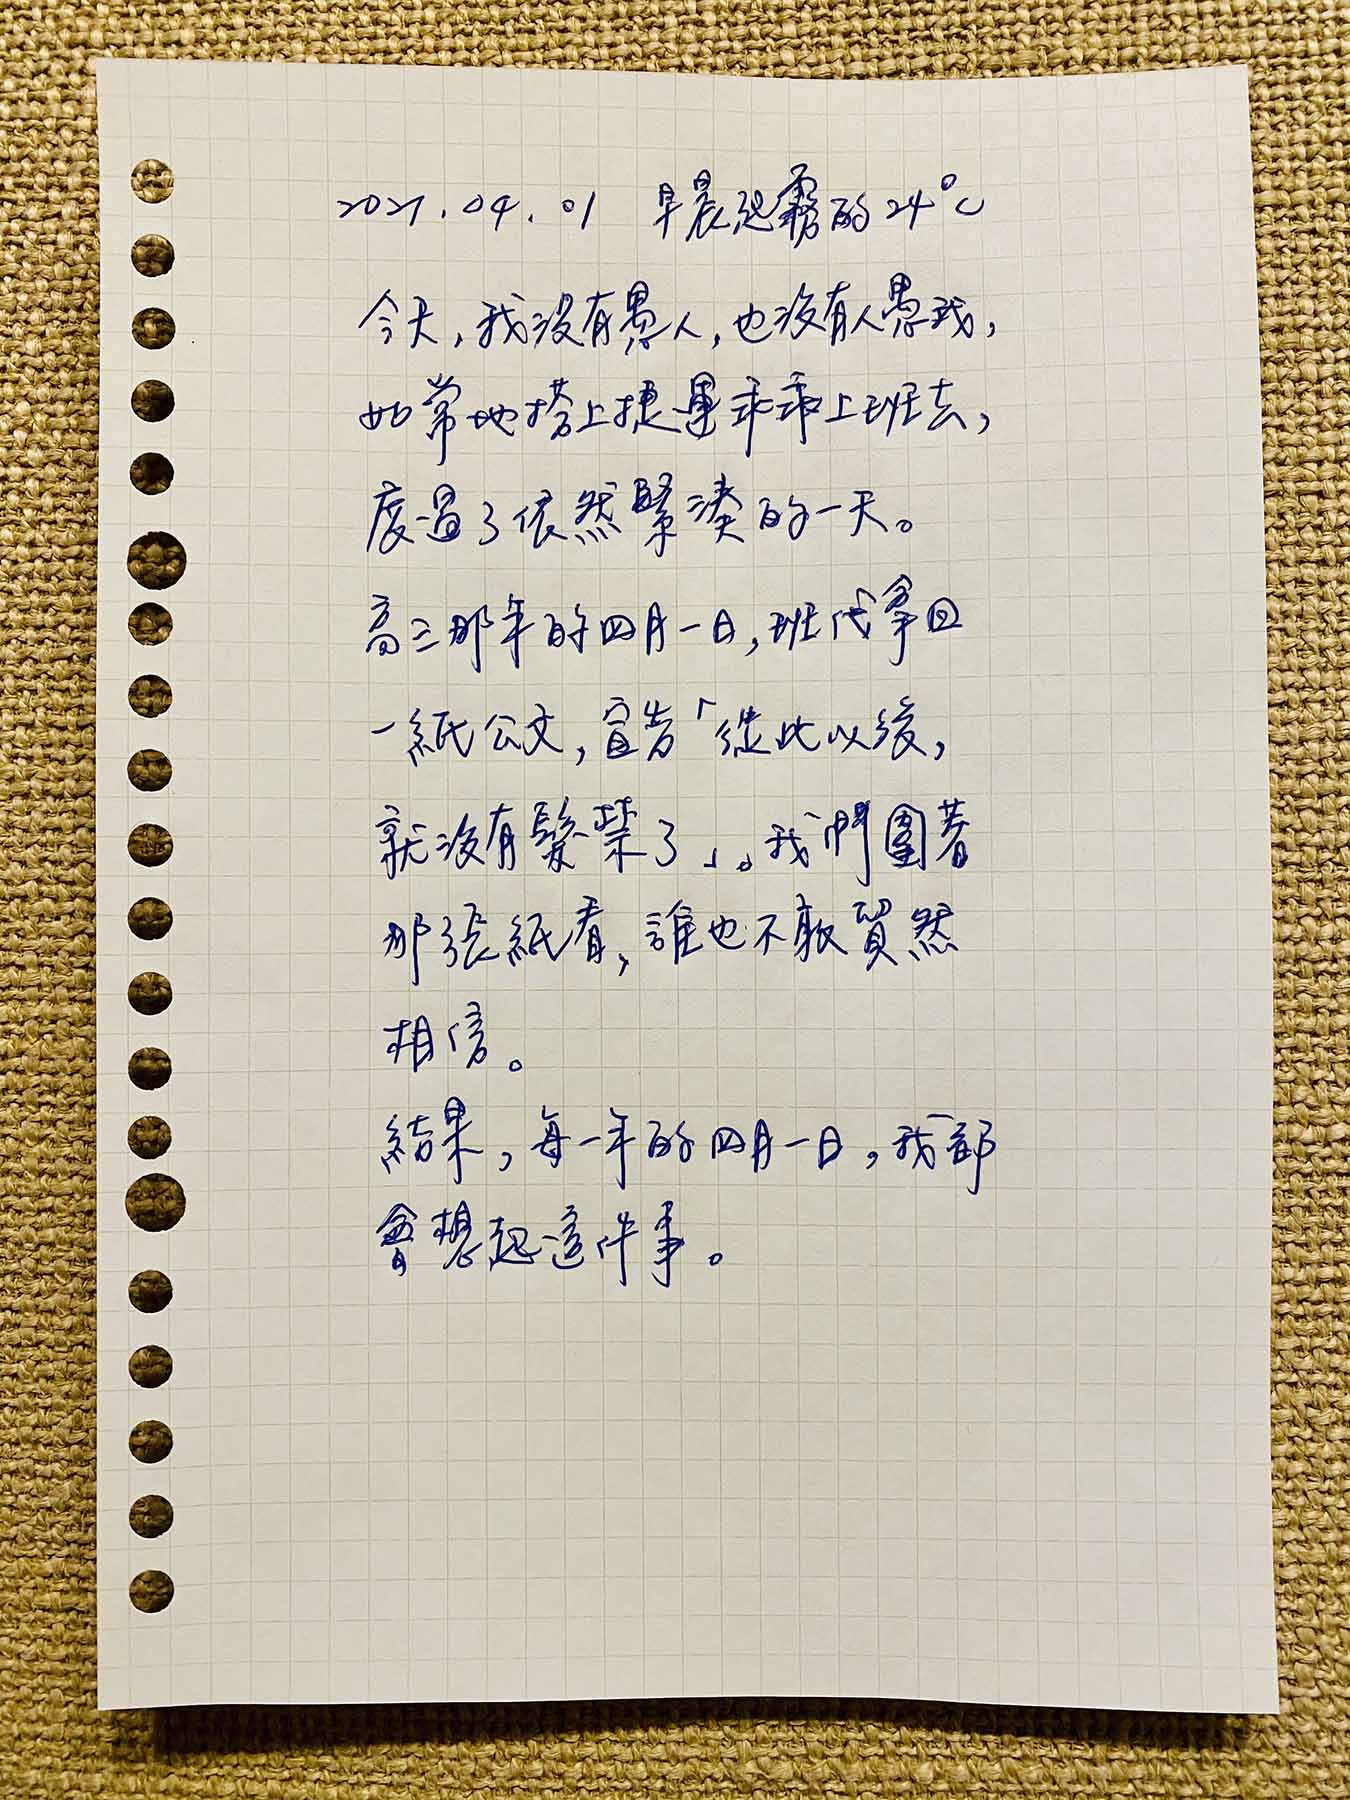 2021.04.01 早晨起霧的24°C
今天,我沒有愚人,也沒有人愚我,
如常地搭上捷運乖乖上班去,
度過了依然緊湊的一天。
高三那年的四月一日,班代拿回
一紙公文,宣告「從此以後,
就沒有髮禁了」。我們圍著
那張紙看,誰也不敢貿然
相信。
結果,每一年的四月一日,我都
會想起這件事。